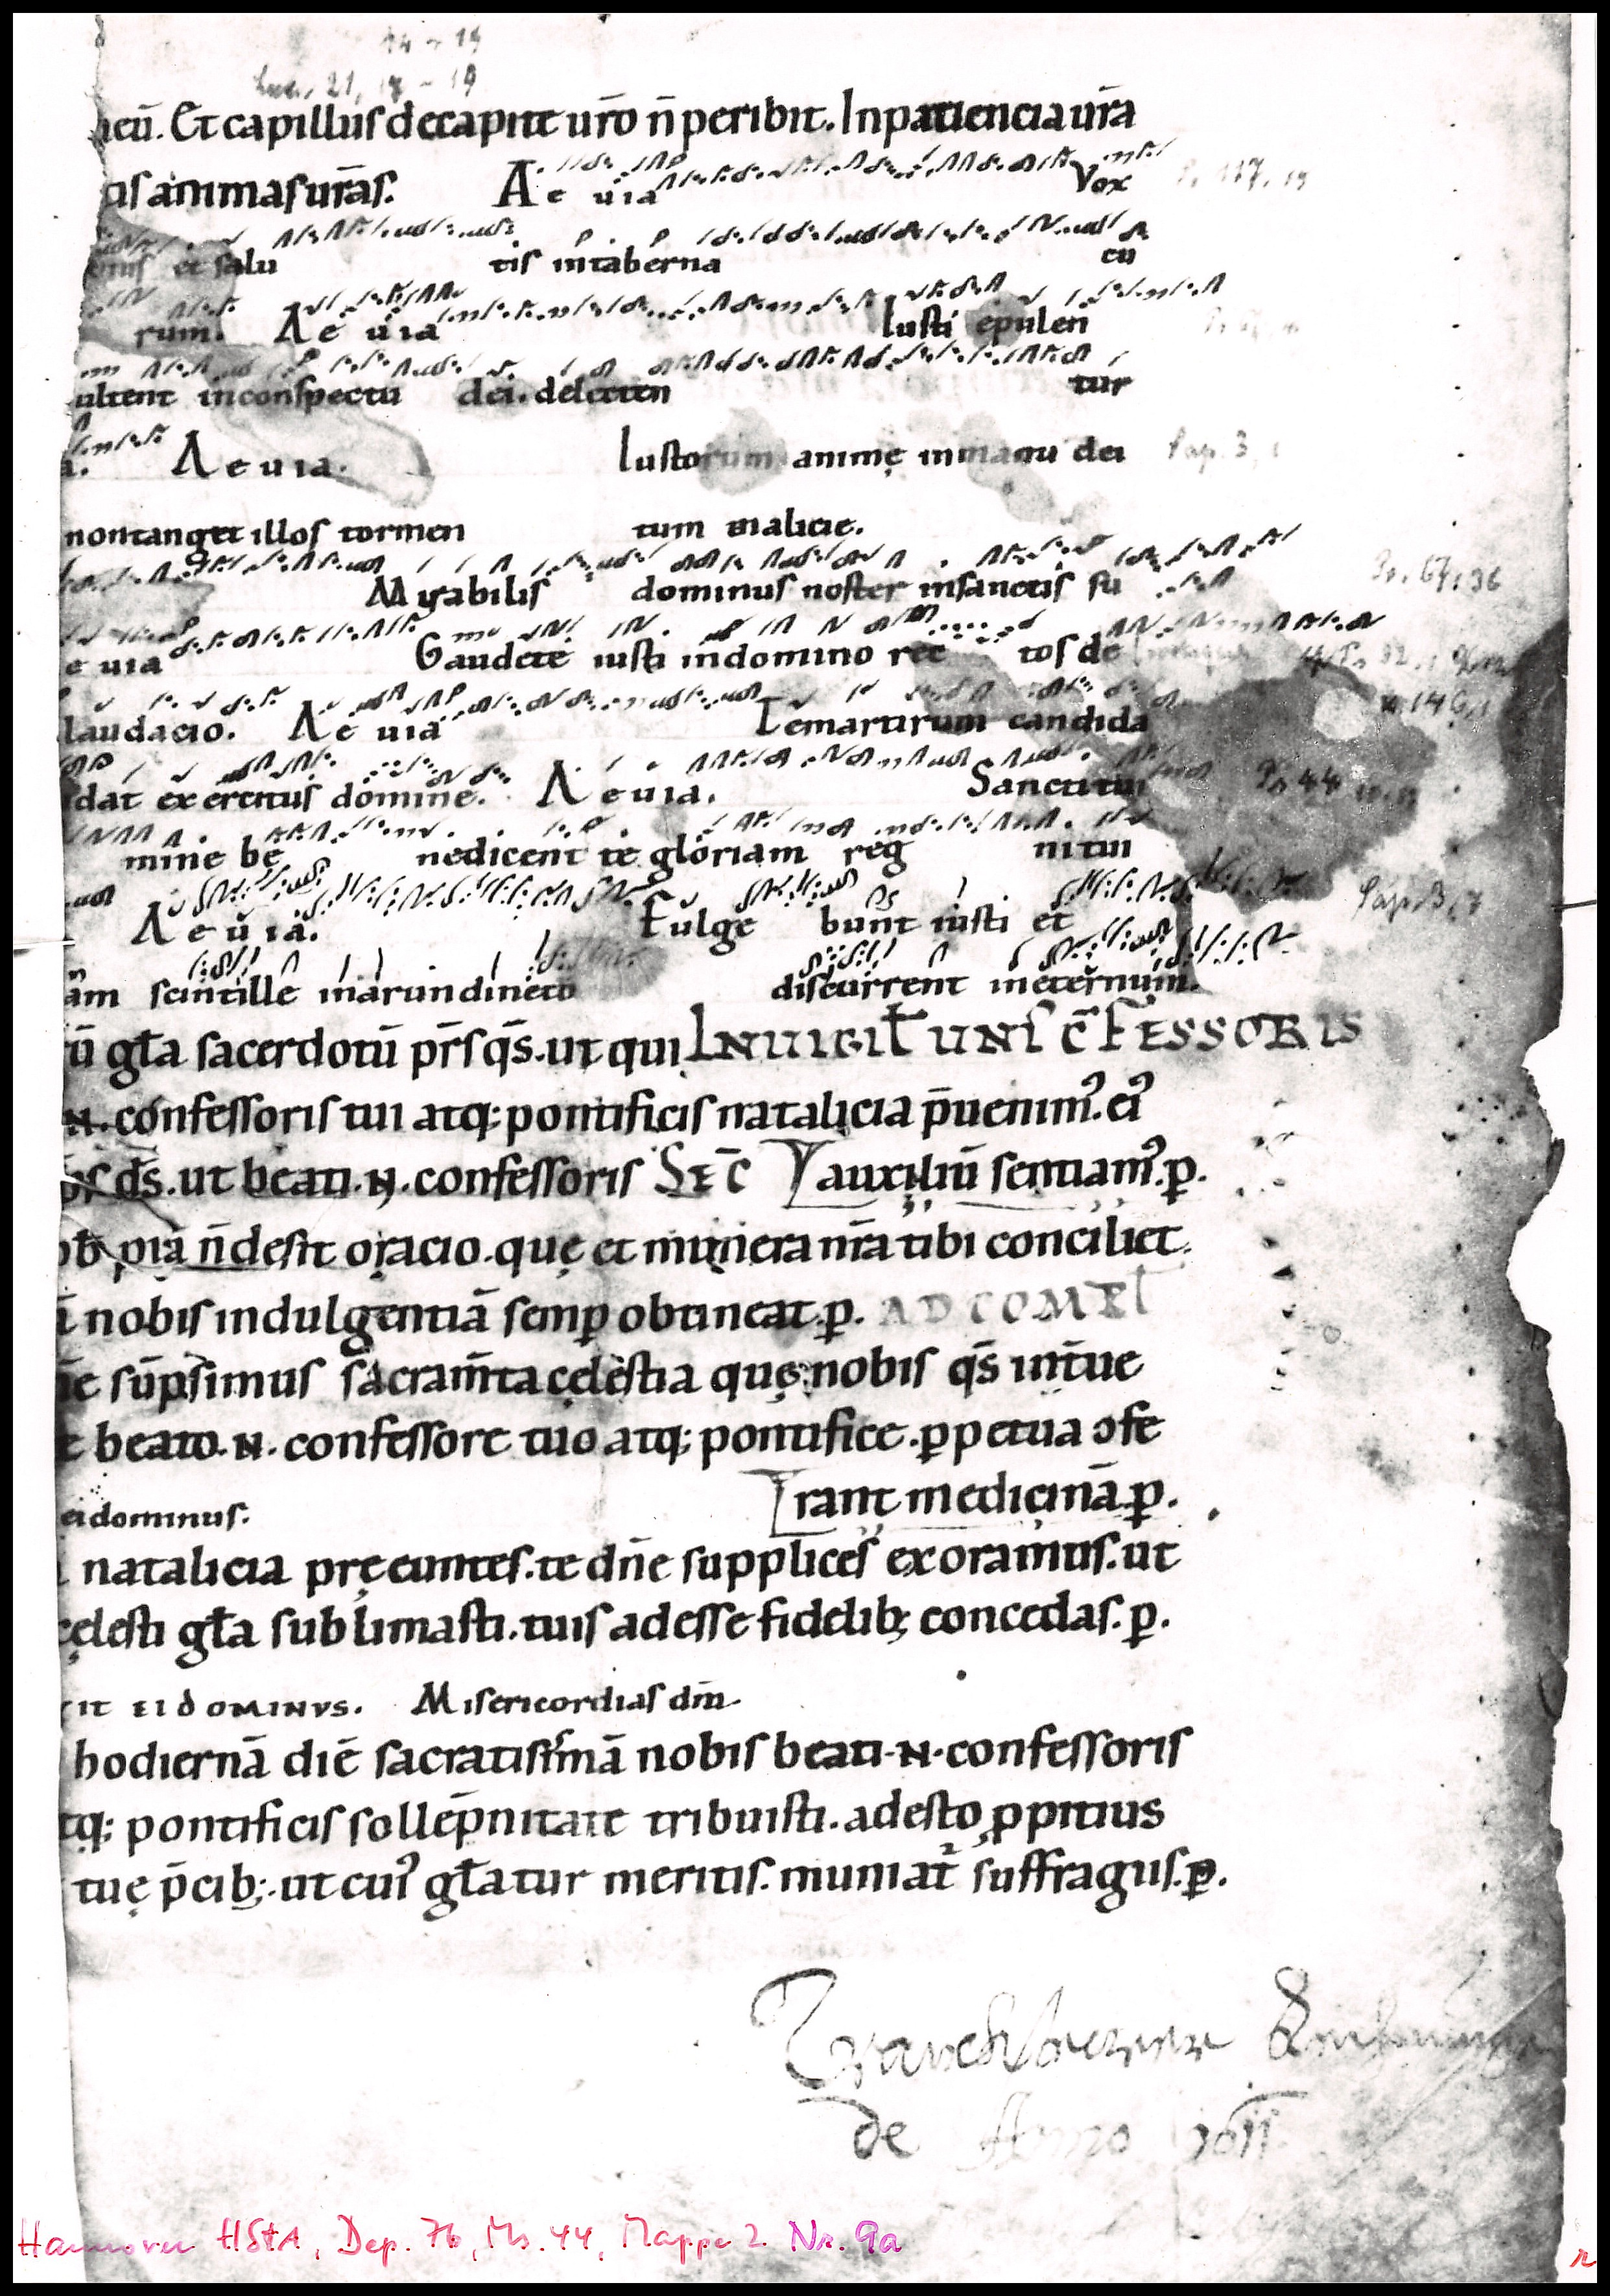 14 - 19
Luc. 21, 18 - 19
meū. Et capillus decapite ur̄o n̄ peribit. Inpatiencia ur̄a
tis animas ur̄as. Ae uia Vox
onis et salu tis intaberna cu
rum. Ae uia Iusti epulen
ultent inconspectu dei. delecten tur
a. Aeuia. Iustorum animę inmanu dei Sap. 3, 1
nontanget illos tormen tum malicie.
Mirabilis dominus noster insanctis su Ps. 67, 36
e uia Gaudete iusti indomino rec tos de
laudacio. Ae uia Te martirum candida
dat exercitus domine. Aeuia. Sancti tui Ps 44
mine be nedicent te gloriam reg ni tui
Ae u ia. Fulge bunt iusti et Sap. 3, 7
am scintille inarundineto discurrent ineternum.
rū gl̄a sacerdotū pr̄s qs̄. ut qui INUIGIL̄ UNI' C̄FESSORIS
.N. confessoris tui atq; pontificis natalicia p̄uenim'. ei'
ds̄. ut beati .N. confessoris SEC̄ auxiliū sentiam'. p.
ob pia n̄ desit oracio. quę et munera nr̄a tibi conciliet.
nobis indulgentiā semp obtineat. p. AD COMPL̄
ne sūpsimus sacram̄ta cęlestia quę nobis qs̄ int̄ue
t beato .N. confessore tuo atq; pontifice. ppetua ɔfe
ei dominus. rant medicinā. p.
natalicia pręeuntes. te dn̄e supplices exoramus. ut
cęlesti gl̄a sublimasti. tuis adesse fidelib; concedas. p.
IT EI DOMINVS. Misericordias dm̄.
hodiernā diē sacratissimā nobis beati .N. confessoris
tq; pontificis sollēpnitate tribuisti. adesto ppitius
tuę p̄cib;. ut cui' gl̄atur meritis. muniat' suffragiis. p.
de Anno 1611
Hannover HStA, Dep. 76, Ms. 44, Mappe 2 Nr. 9a
r